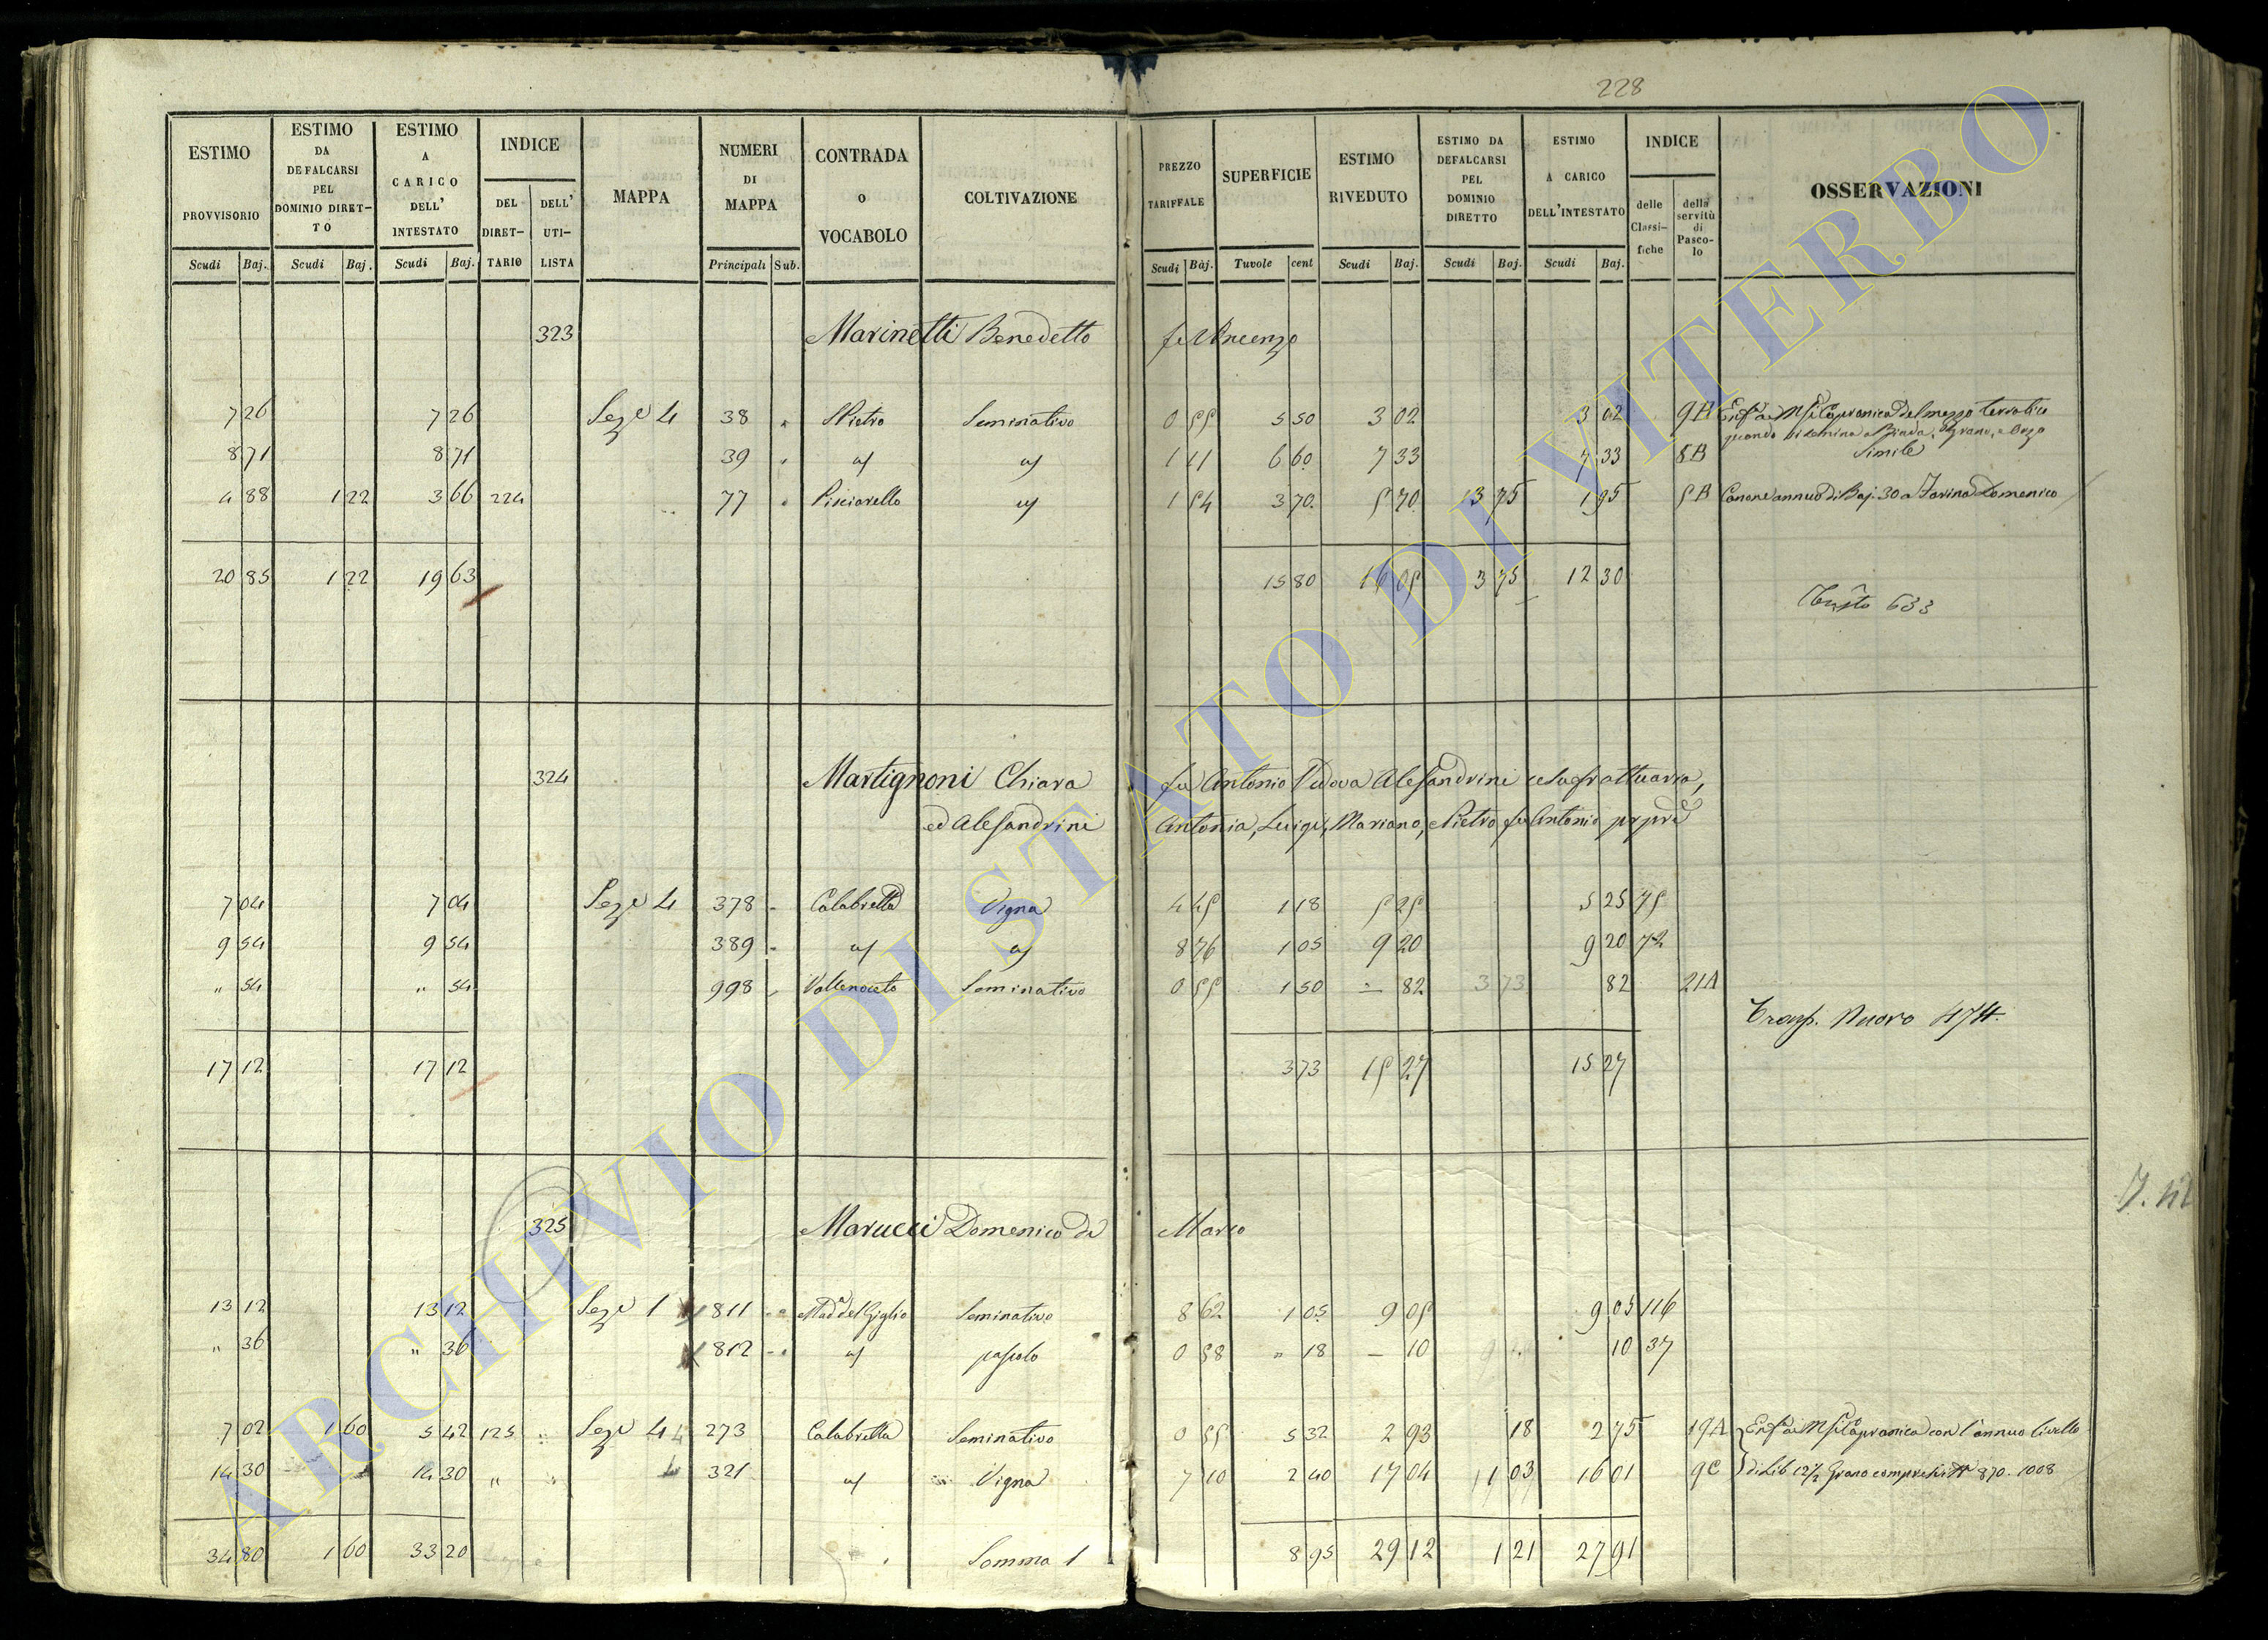 228
ESTIMO PROVVISORIO Scudi Baj.
ESTIMO DA DEFALCARSI PEL DOMINIO DIRETTO Scudi Baj.
ESTIMO A CARICO DELL' INTESTATO Scudi Baj.
INDICE DEL DIRETTARIO DELL' UTILISTA
MAPPA
NUMERI DI MAPPA Principali Sub.
CONTRADA o VOCABOLO
COLTIVAZIONE
PREZZO TARIFFALE Scudi Baj.
SUPERFICIE Tavole cent
ESTIMO RIVEDUTO Scudi Baj.
ESTIMO DA DEFALCARSI PEL DOMINIO DIRETTO Scudi Baj.
ESTIMO A CARICO DELL'INTESTATO Scudi Baj.
INDICE delle Classifiche della servitù di Pascolo
OSSERVAZIONI
323 Marinetti Benedetto fu Vincenzo
7 26 7 26 Seze 4 38 " S Pietro Seminativo 0 55 5 50 3 02 3 02 9A
quando si semina a Biada, Grano, e Orzo
8 71 8 71 39 " " " 1 11 6 60 7 33 7 33 8B Simile
4 88 1 22 3 66 224 77 " Pisciarello " 1 54 3 70 5 70 3 75 1 95 5B Canone annuo di Baj. 30 a Farina Domenico
20 85 1 22 19 63 15 80 16 05 3 75 12 30
633
324 Martignoni Chiara fu Antonio Vedova Alesandrini usufruttuaria,
ed Alesandrini Antonia, Luigi, Mariano, e Pietro fu Antonio
7 04 7 04 Seze 4 378 - Calabretta Vigna 4 45 1 18 5 25 5 25 75
9 54 9 54 389 - " " 8 76 1 05 9 20 9 20 72
" 54 " 54 998 Vallenoceto Seminativo 0 55 1 50 - 82 3 73 82 21A
Trasp. Nuovo 474.
17 12 17 12 3 73 15 27 15 27
325 Marucci Domenico di Marco
13 12 13 12 Seze 1 811 Mad.a del Giglio Seminativo 8 62 1 05 9 05 9 05 116
" 36 " 36 812 " pascolo 0 58 " 18 - 10 10 37
7 02 1 60 5 42 125 Seze 4 273 Calabretta Seminativo 0 55 5 32 2 93 18 2 75 19A con l'annuo livello
14 30 14 30 " 321 " Vigna 7 10 2 40 17 04 1 03 16 01 9C di Lib. 12 1/2 Grano compresi 870. 1008
34 80 1 60 33 20 Somma 1 8 95 29 12 1 21 27 91
ARCHIVIO DI STATO DI VITERBO